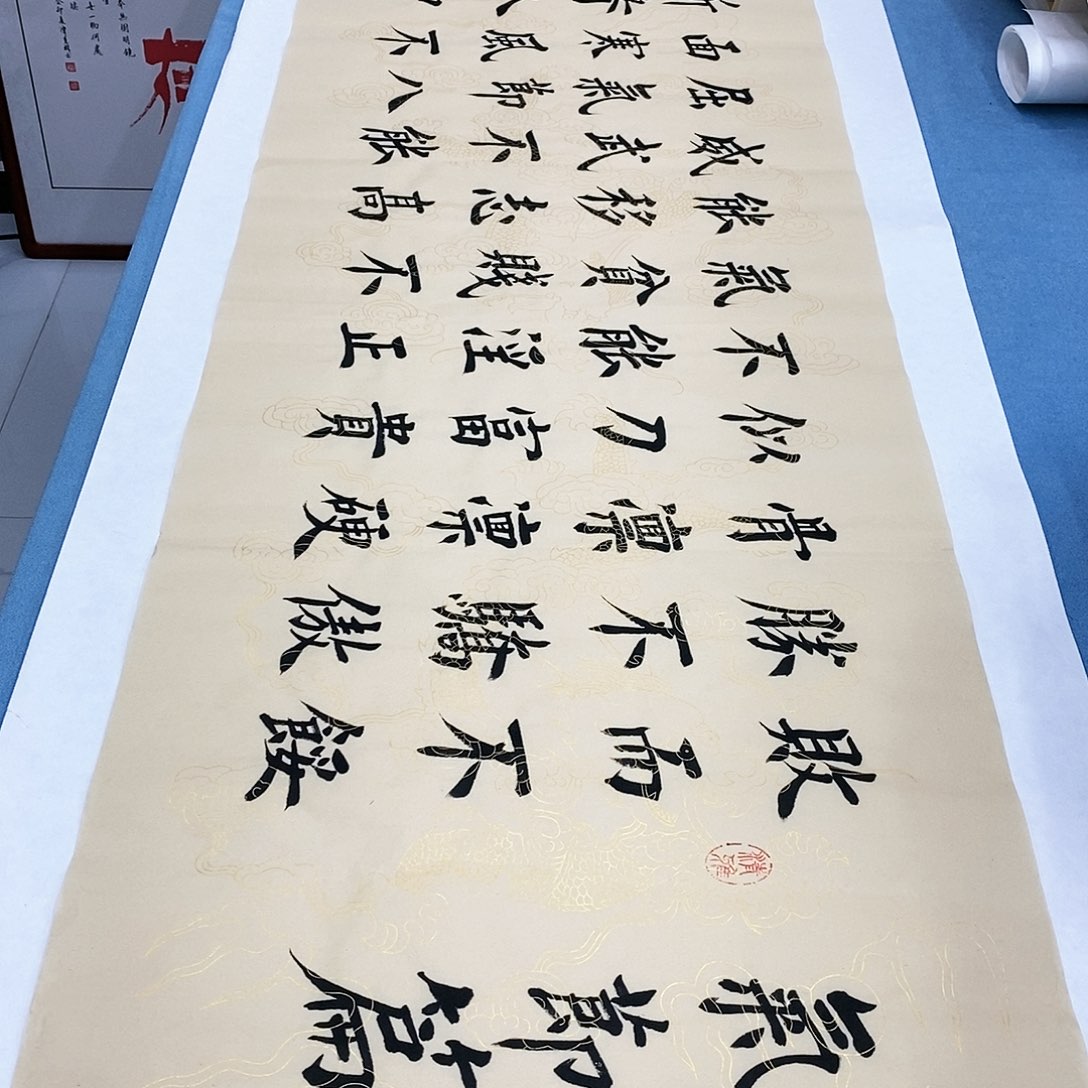 氣節篇
敗而不餒
勝不驕傲
骨凛凛硬
似刀富貴
不能淫正
氣貧賤不
能移志高
威武不能
屈氣節八
面寒風不